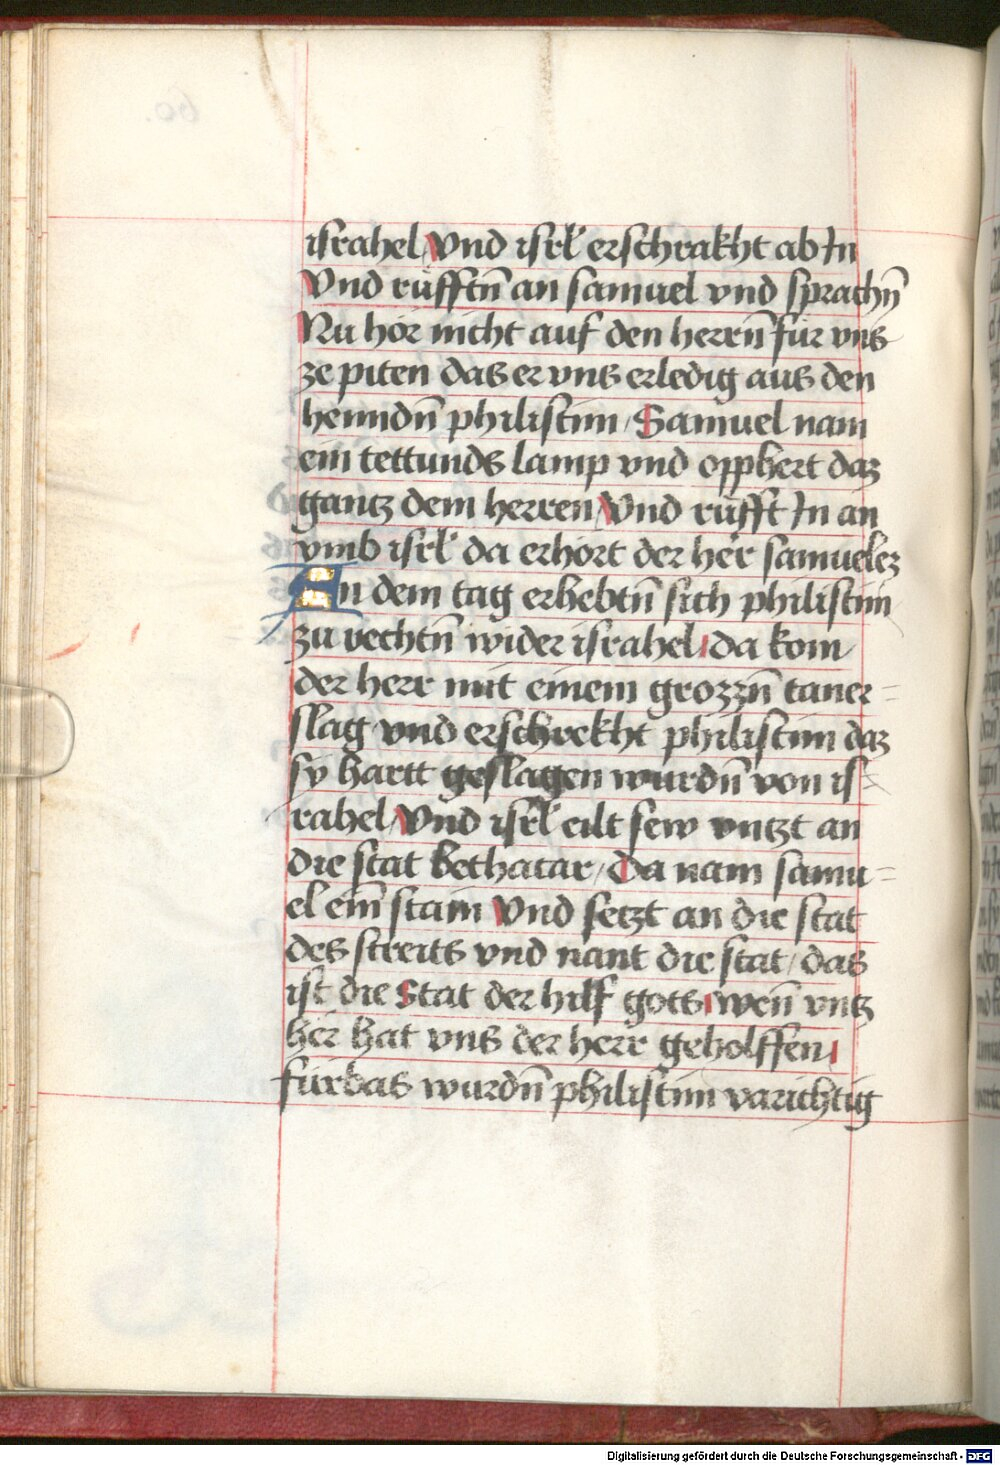 israhel / Vnd isrl̄ erschrakht ab In
Vnd rüfftn̄ an samuel vnd sprachn̄
Nu hör nicht auf den herrn̄ für vns
ze piten das er vns erledig aus den
henndn̄ philistim / Samuel nam
ein tettunds lamp vnd opphert daz
gantz dem herren / Vnd rüfft In an
vmb isrl̄ da erhört der her̄ samuelez
An dem tag erhebtn̄ sich philistim
zu vechtn̄ wider israhel / da kom
der herr mit einem grozzn̄ taner=
slag vnd erschrekht philistim daz
sy hartt geslagen wurdn̄ von is=
rahel / Vnd isrl̄ eilt sew vntzt an
die stat bethatar / Da nam samu=
el ein̄ stain Vnd setzt an die stat
des streits vnd nant die stat / das
ist die Stat der hilf gots / wen̄ vntz
her hat vns der herr geholffen /
fürbas wurdn̄ philistim varichtig
60.
Digitalisierung gefördert durch die Deutsche Forschungsgemeinschaft - DFG